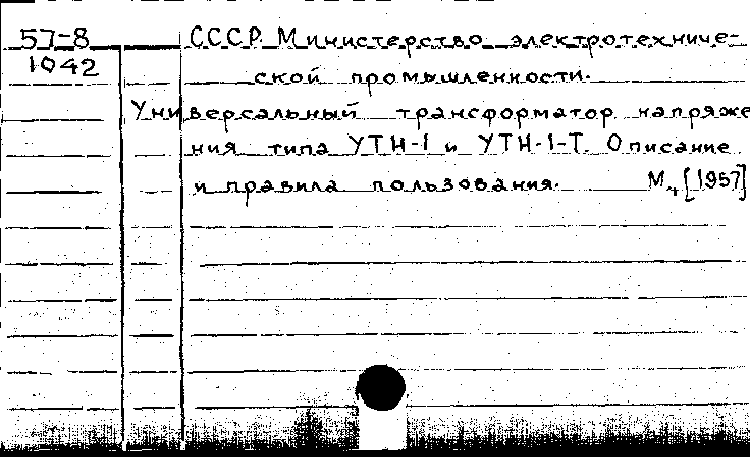 57-8 СССР. Министерство электротехниче-
1042 ской промышленности.
Универсальный трансформатор напряже
ния типа УТН-1 и УТН-1-Т. Описание
и правила пользования. М., [1957]